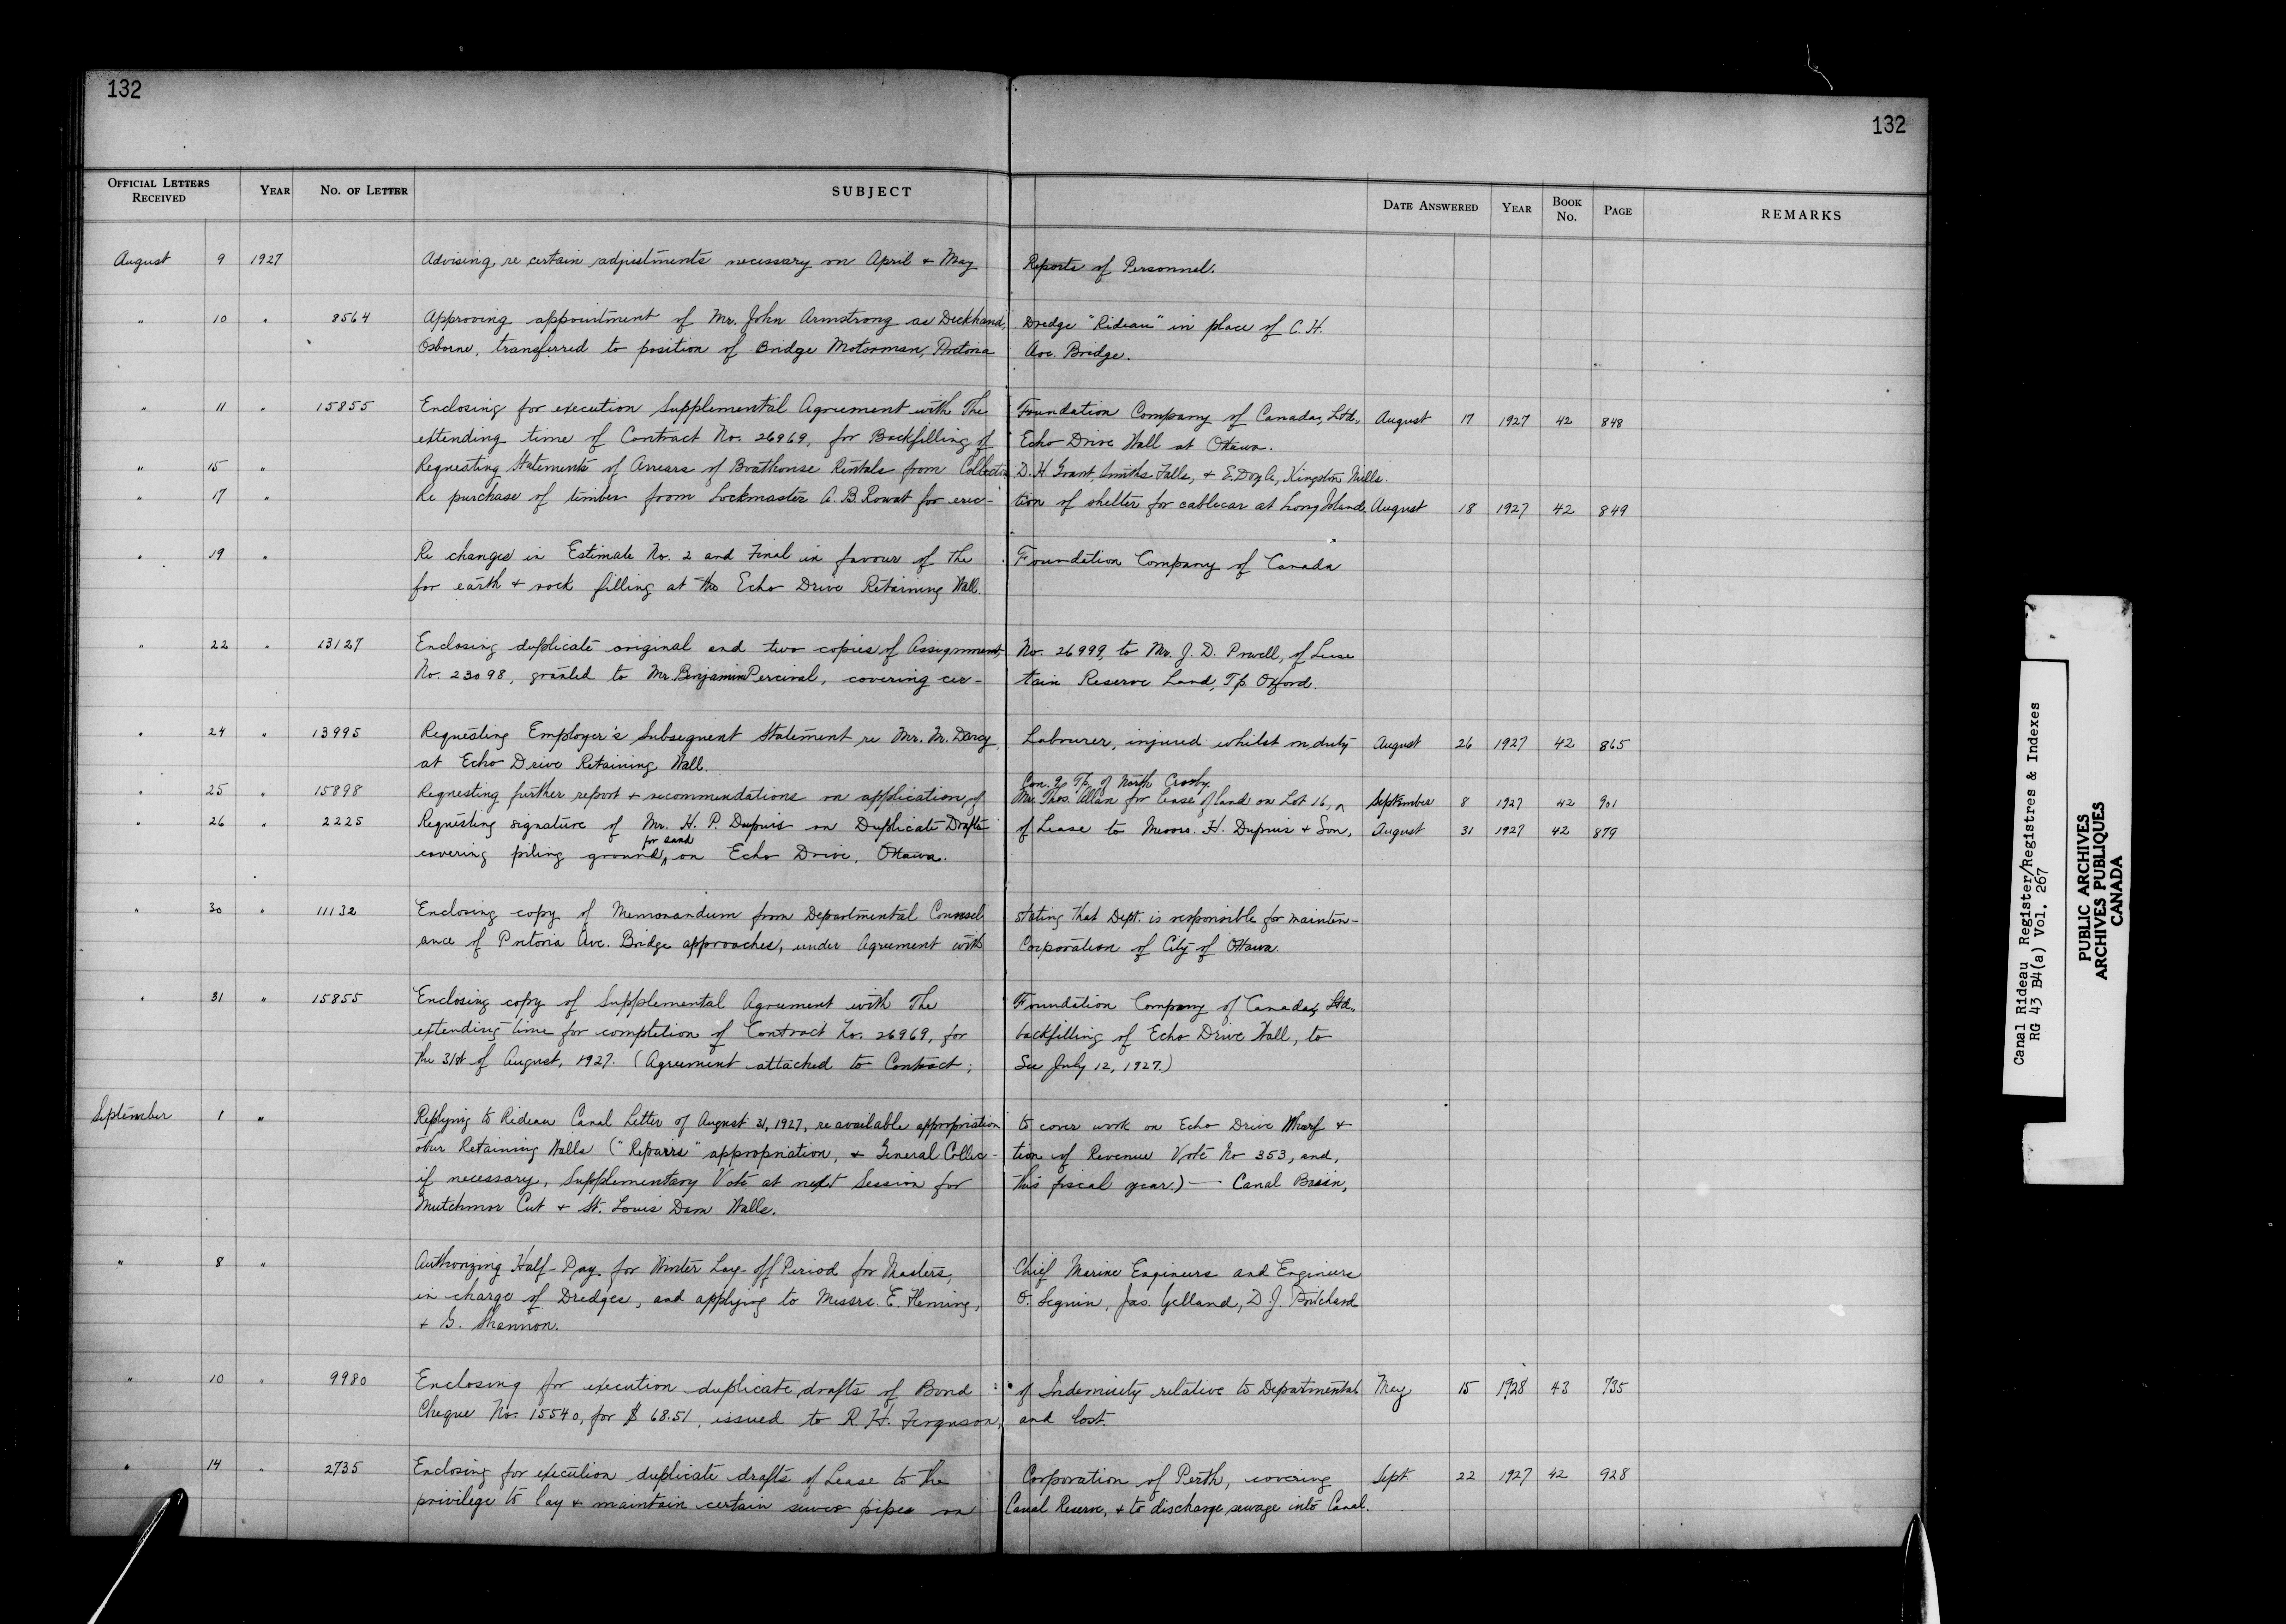 132
132
OFFICIAL LETTERS RECEIVED YEAR NO. OF LETTER SUBJECT DATE ANSWERED YEAR BOOK No. PAGE REMARKS
August 9 1927 Advising re certain adjustments necessary on April & May Reports of Personnel.
" 10 " 8564 Approving appointment of Mr. John Armstrong as Deckhand, Dredge "Rideau" in place of C. H.
Osborne, transferred to position of Bridge Motorman, Pretoria Ave. Bridge.
" 11 " 15855 Enclosing for execution Supplemental Agreement with The Foundation Company of Canada, Ltd., August 17 1927 42 848
extending time of Contract No. 26969, for Backfilling of Echo Drive Wall at Ottawa.
" 15 " Requesting Statements of Arrears of Boathouse Rentals from Collectors D. H. Grant, Smiths Falls, & E. Doyle, Kingston Mills.
" 17 " Re purchase of timber from Lockmaster A. B. Rowat for erec- tion of shelter for cablecar at Long Island. August 18 1927 42 849
" 19 " Re changes in Estimate No. 2 and Final in favour of the Foundation Company of Canada
for earth & rock filling at the Echo Drive Retaining Wall.
" 22 " 13127 Enclosing duplicate original and two copies of Assignment, No. 26999, to Mr. J. D. Powell, of Lease
No. 23098, granted to Mr. Benjamin Percival, covering cer- tain Reserve Land, Tp. Oxford.
" 24 " 13995 Requesting Employer's Subsequent Statement re Mr. M. Darcy, Labourer, injured whilst on duty August 26 1927 42 865
at Echo Drive Retaining Wall.
Con. 9, Tp. of North Crosby.
" 25 " 15898 Requesting further report & recommendations on application of Mr. Thos. Allan for lease of land on Lot 16, ^ September 8 1927 42 901
" 26 " 2225 Requesting signature of Mr. H. P. Dupuis on Duplicate Drafts of Lease to Messrs. H. Dupuis & Son, August 31 1927 42 879
for sand
covering piling ground ^ on Echo Drive, Ottawa.
" 30 " 11132 Enclosing copy of Memorandum from Departmental Counsel stating that Dept. is responsible for mainten-
ance of Pretoria Ave. Bridge approaches, under Agreement with Corporation of City of Ottawa.
" 31 " 15855 Enclosing copy of Supplemental Agreement with The Foundation Company of Canada, Ltd.,
extending time for completion of Contract No. 26969, for backfilling of Echo Drive Wall, to
the 31st of August, 1927. (Agreement attached to Contract; See July 12, 1927.)
September 1 " Replying to Rideau Canal Letter of August 31, 1927, re available appropriation to cover work on Echo Drive Wharf &
other Retaining Walls ("Repairs" appropriation, & General Collec- tion of Revenue Vote No 353, and,
if necessary, Supplementary Vote at next Session for this fiscal year.) — Canal Basin,
Mutchmor Cut & St. Louis Dam Walls.
" 8 " Authorizing Half-Pay for Winter Lay-off Period for Masters, Chief Marine Engineers and Engineers
in charge of Dredges, and applying to Messrs. E. Fleming, O. Seguin, Jas. Gelland, D. J. Pritchard
& G. Shannon.
" 10 " 9980 Enclosing for execution duplicate drafts of Bond of Indemnity relative to Departmental May 15 1928 43 735
Cheque No. 15540, for $ 68.51, issued to R. H. Ferguson, and lost.
" 14 " 2735 Enclosing for execution duplicate drafts of Lease to the Corporation of Perth, covering Sept 22 1927 42 928
privilege to lay & maintain certain sewer pipes on Canal Reserve, & to discharge sewage into Canal.
Canal Rideau Register/Registres & Indexes
RG 43 B4(a) Vol. 267
PUBLIC ARCHIVES
ARCHIVES PUBLIQUES
CANADA